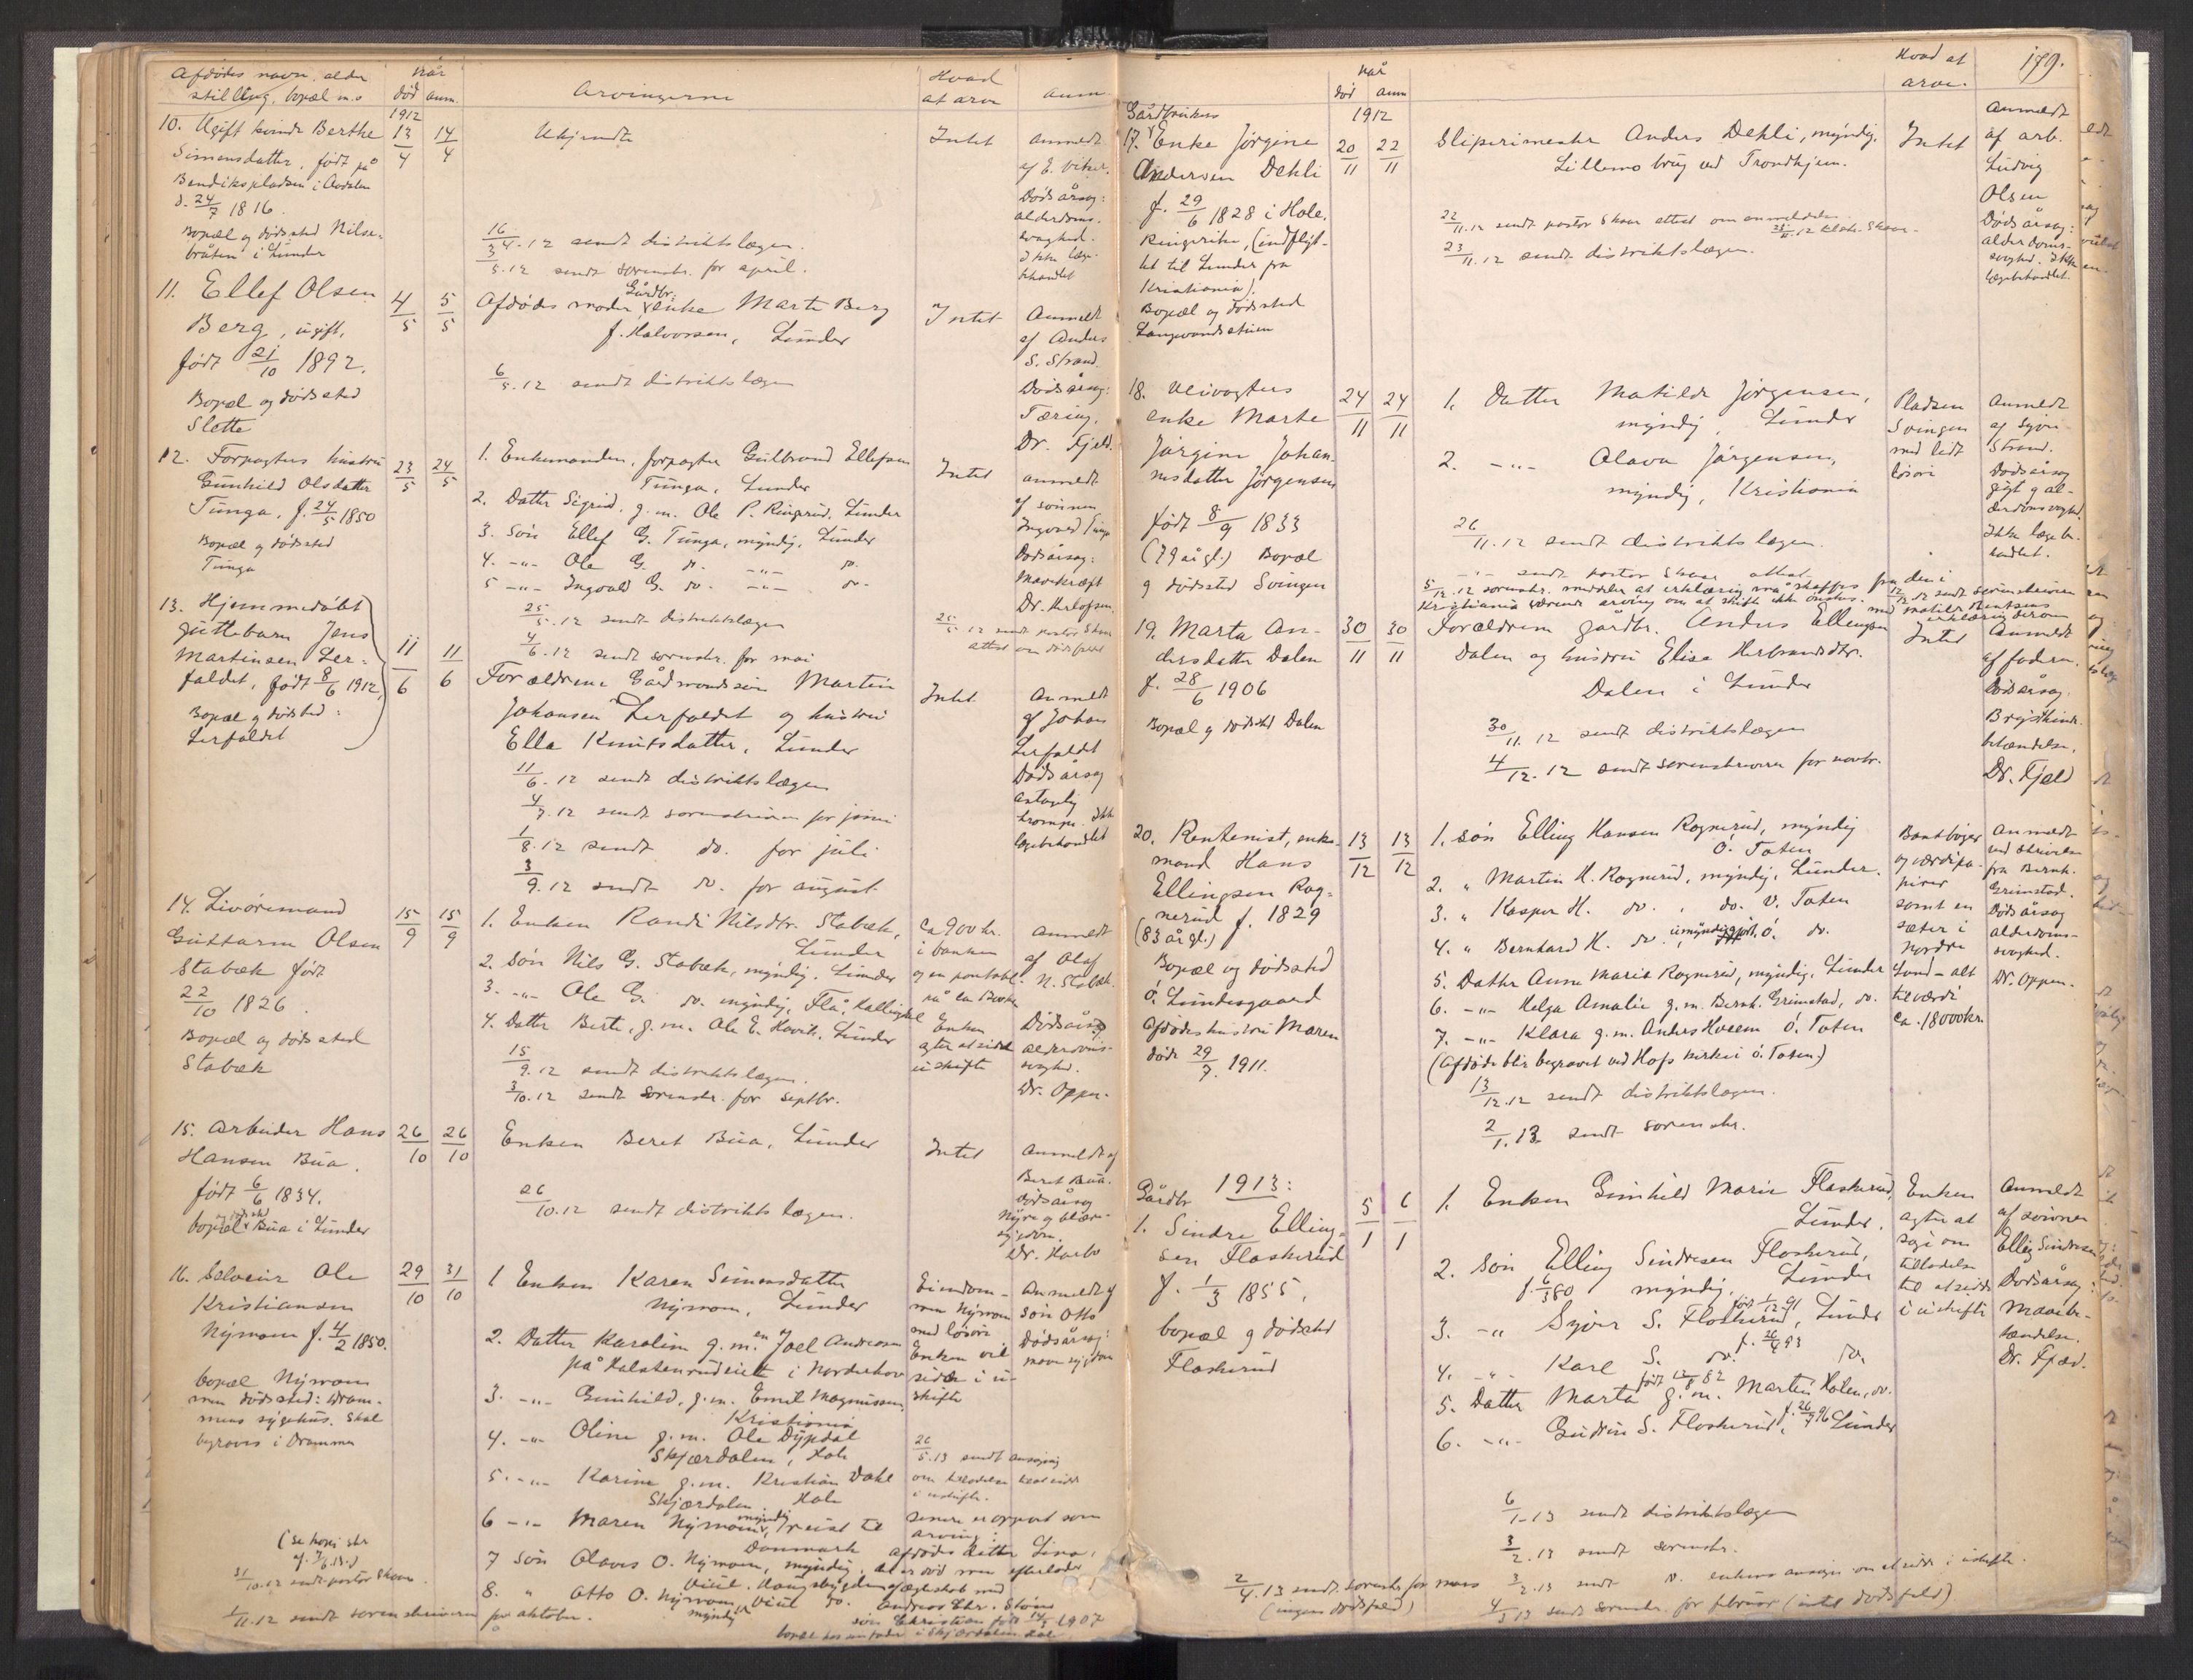 Afdødes navn, alder
stilling, bopæl m.v.
når
død anm.
Arvingerne
Hvad
at arve
anm.
1912
10. Ugift kvinde Berthe
Simensdatter, født på
Bendikspladsen i Aadalen
d. 24/7 1816.
Bopæl og dødssted Nilse-
bråten i Lunder
13/4 14/4
Ukjendte
16/4.12 sendt distriktslægen.
3/5.12 sendt sorenskr. for april.
Intet
Anmeldt
af E. Viker.
Dødsårsag:
alderdoms-
svaghed.
Ikke læge-
behandlet
11. Ellef Olsen
Berg, ugift,
født 21/10 1892.
Bopæl og dødssted
Slette
4/5 5/5
Afdødes moder Gårdbr. enke Marte Berg
f. Halvorsen, Lunder
6/5.12 sendt distriktslægen
Intet
Anmeldt
af Anders
S. Strand.
Dødsårsag:
Tæring.
Dr. Fjeld.
12. Forpagters hustru
Gunhild Olsdatter
Tunga, f. 24/5 1850
Bopæl og dødssted
Tunga
23/5 24/5
1. Enkemanden, forpagter Gulbrand Ellefsen
Tunga, Lunder
2. Datter Sigrid, g.m. Ole P. Ringerud, Lunder
3. Søn Ellef G. Tunga, myndig, Lunder
4. -"- Ole G. do. -"- do.
5 -"- Ingvald G. do. -"- do.
25/5.12 sendt distriktslægen
4/6.12 sendt sorenskr. for mai
Intet
25/5 12 sendt pastor Skaar
attest om dødsfaldet
anmeldt
af sønnen
Ingvald Tunga
Dødsårsag:
Mavekræft
Dr. Herlofsen.
13. Hjemmedøbt
guttebarn Jens
Martinsen Ler-
faldet, født 8/6 1912,
Bopæl og dødssted:
Lerfaldet
11/6 11/6
Forældrene Gårdmandssøn Martin
Johansen Lerfaldet og hustru
Ella Knutsdatter, Lunder
11/6.12 sendt distriktslægen
4/7.12 sendt sorenskriveren for juni
1/8.12 sendt do. for juli
3/9.12 sendt do. for august
Intet
Anmeldt
af Johan
Lerfaldet
Dødsårsag
antagelig
krampe. Ikke
lægebehandlet
14. Livøresmand
Guttorm Olsen
Stabæk født
22/10 1826.
Bopæl og dødssted
Stabæk
15/9 15/9
1. Enken Randi Nilsdtr. Stabæk,
Lunder
2. Søn Nils G. Stabæk, myndig, Lunder
3. -"- Ole G. do. myndig, Flå, Hallingdal
4. Datter Berte, g.m. Ole E. Hovik, Lunder
15/9.12 sendt distriktslægen.
3/10.12 sendt sorenskr. for septbr.
Ca 900 kr.
i banken
og en panteobl.
Enken
agter at sidde
i uskifte
Anmeldt
af Olaf
N. Stabæk.
Dødsårsag
alderdoms-
svaghed.
Dr. Oppen.
15. Arbeider Hans
Hansen Bua.
født 6/6 1834.
bopæl og dødssted Bua i Lunder
26/10 26/10
Enken Beret Bua, Lunder
26/10.12 sendt distriktslægen.
Intet
Anmeldt af
Beret Bua.
Dødsårsag
Nyre og blære-
sygdom.
Dr. Harbo
16. Selveier Ole
Kristiansen
Nymoen f. 4/2 1850.
bopæl Nymoen
men dødssted: Dram-
mens sygehus. Skal
begraves i Drammen
29/10 31/10
1 Enken Karen Simensdatter
Nymoen, Lunder
2. Datter Karoline g.m. Joel Andersen
på Halstenrudeiet i Norderhov
3. -"- Gunhild, g.m. Emil Magnussen,
Kristiania
4. -"- Oline g.m. Ole Dypdal
Skjærdalen, Hole
5. -"- Karine g.m. Kristian Dahl
Skjærdalen Hole
6 -"- Maren Nymoen, myndig, reist til
Danmark
7 Søn Olaves O. Nymoen, myndig.
8. " Otto O. Nymoen
myndig
Eiendom-
men Nymoen
med løsøre
Enken vil
sidde i u-
skifte
26/5.13 sendt ansøgning
om tilladelse til at sidde
i uskifte.
senere er opgivet som
arving:
afdødes datter Lina,
der er død men efterlader
i ægteskab med
Andreas Chr. Steens
søn Christian født 14/5 1907
bopæl hos sin fader i Skjærdalen Hole
Anmeldt af
søn Otto
Dødsårsag:
mavesygdom
(se kopi skr
af 7/6.13.)
31/10.12 sendt pastor Skaar.
1/11.12 sendt sorenskriveren for oktober.
når
død anm
Hvad at
arve.
179.
1912
Gårdbrukers
17. Enke Jørgine
Andersen Dehli
f. 29/6 1828 i Hole,
Ringerike, (indflyt-
tet til Lunder fra
Kristiania).
Bopæl og dødssted
Langvandsstuen
20/11 22/11
Sliperimester Anders Dehli, myndig.
Lillemo brug ved Trondhjem.
22/11.12 sendt pastor Skaar attest om anmeldelse
23/11.12 sendt distriktslægen.
Intet
Anmeldt
af arb.
Ludvig
Olsen
Dødsårsag:
alderdoms-
svaghed. Ikke
lægebehandlet.
18. Veivogters
enke Marte
Jørgine Johan-
nesdatter Jørgensen
født 8/9 1833
(79 år gl.) Bopæl
og dødssted Svingen
24/11 24/11
1. Datter Matilde Jørgensen,
myndig, Lunder
2. -"- Olava Jørgensen,
myndig, Kristiania
26/11.12 sendt distriktslægen.
-"- sendt pastor Skaar attest
5/12.12 sorenskr. meddeler at erklæring må skaffes fra den i
Kristiania værende arving om at skifte ikke ønskes.
12/12.12 sendt sorenskriveren
Pladsen
Svingen
med lidt
løsøre
Anmeldt
af Syver
Strand.
Dødsårsag
gigt og al-
derdomssvaghed.
Ikke lægebe-
handlet.
19. Marta An-
dersdatter Dalen
f. 28/6 1906
Bopæl og dødssted Dalen
30/11 30/11
Forældrene gårdbr. Anders Ellingsen
Dalen og hustru Elise Herbrandsdtr.
Dalen i Lunder
30/11.12 sendt distriktslægen
4/12.12 sendt sorenskriveren for novbr.
Intet
Anmeldt
af faderen.
Dødsårsag:
Brysthinde-
betændelse.
Dr. Fjeld
20. Rentenist, enke-
mand Hans
Ellingsen Rog-
nerud f. 1829
(83 år gl.)
Bopæl og dødssted
Ø. Lundesgaard
Afdødes hustru Maren
døde 29/7. 1911.
13/12 13/12
1. søn Elling Hansen Rognerud, myndig
Ø. Toten
2. " Martin H. Rognerud, myndig, Lunder.
3. " Kasper H. do., do. V. Toten
4. " Bernhard H. do., umyndiggjort, Ø. do.
5. Datter Anne Marie Rognerud, myndig, Lunder
6. -"- Helga Amalie g.m. Bernh. Grimstad, do.
7. -"- Klara g.m. Anders Hveem Ø. Toten
(Afdøde blir begravet ved Hofs kirke i Ø. Toten.)
13/12.12 sendt distriktslægen.
2/1.13 sendt sorenskr.
Bankbøger
og værdipa-
pirer
samt en
sæter i
Nordre
Land - alt
til værdi
ca. 18000 kr.
Anmeldt
ved skrivelse
fra Bernh.
Grimstad.
Dødsårsag
alderdoms-
svaghed.
Dr. Oppen.
1913:
Gårdbr
1. Sindre Elling-
sen Flaskerud
f. 1/3 1855,
bopæl og dødssted
Flaskerud
5/1 6/1
1. Enken Gunhild Marie Flaskerud,
Lunder.
2. Søn Elling Sindresen Flaskerud,
f. 6/3 80 myndig, Lunder
3. -"- Syver S. Flaskerud, Lunder
4. -"- Karl S. do. f. 26/4 93 do.
5. Datter Marta g.m. Martin Holen, do.
6. -"- Gudrun S. Flaskerud, f. 26/7 96 Lunder
6/1.13 sendt distriktslægen
3/2.13 sendt sorenskr.
3/2.13 sendt do. enkens ansøgn. om at sidde i uskifte.
4/3.13 sendt sorenskr. for februar (intet dødsfald)
2/4.13 sendt sorenskr. for mars
(ingen dødsfald)
Enken
agter at
søge om
tilladelse
til at sidde
i uskifte
Anmeldt
af sønnen
Elling Sindresen
Dødsårsag:
Mavebe-
tændelse.
Dr. Fjeld.